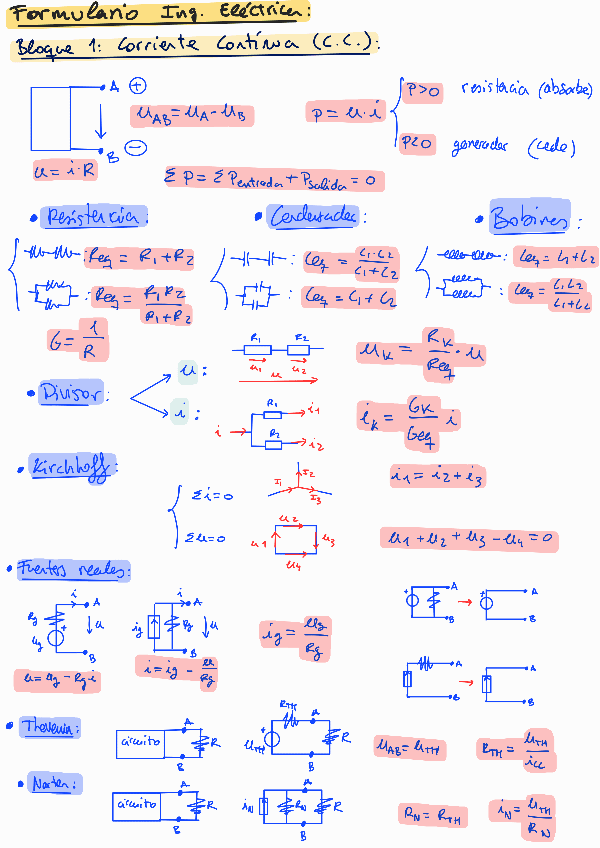 Formulario Ing. Eléctrica:
Bloque 1: Corriente Contínua (C.C.):
A ⊕
B ⊖
u_AB = u_A - u_B
u = i·R
P = u·i
P>0 resistencia (absorbe)
P<0 generador (cede)
Σ P = Σ P_entrada + P_salida = 0
• Resistencia:
: Req = R1 + R2
: Req = R1 R2 / R1 + R2
G = 1/R
• Condensador:
: Ceq = C1·C2 / C1 + C2
: Ceq = C1 + C2
• Bobinas:
: Leq = L1 + L2
: Leq = L1 L2 / L1 + L2
• Divisor:
u:
R1 R2
u1 u2
u
u_K = R_K / Req · u
i:
R1 i1
i
R2 i2
i_K = G_K / Geq i
• Kirchhoff:
Σ i = 0
I1 I2 I3
i1 = i2 + i3
Σ u = 0
u1 u2 u3 u4
u1 + u2 + u3 - u4 = 0
• Fuentes reales:
i A
Rg
+
ug
u
B
u = ug - Rg i
i A
ig Rg u
B
i = ig - u / Rg
ig = ug / Rg
A
+
B
A
+
B
A
B
A
B
• Thevenin:
circuito
A
R
B
R_TH A
+
u_TH R
B
u_AB = u_TH
R_TH = u_TH / icc
• Norton:
circuito
A
R
B
A
i_N R_N R
B
R_N = R_TH
i_N = u_TH / R_N